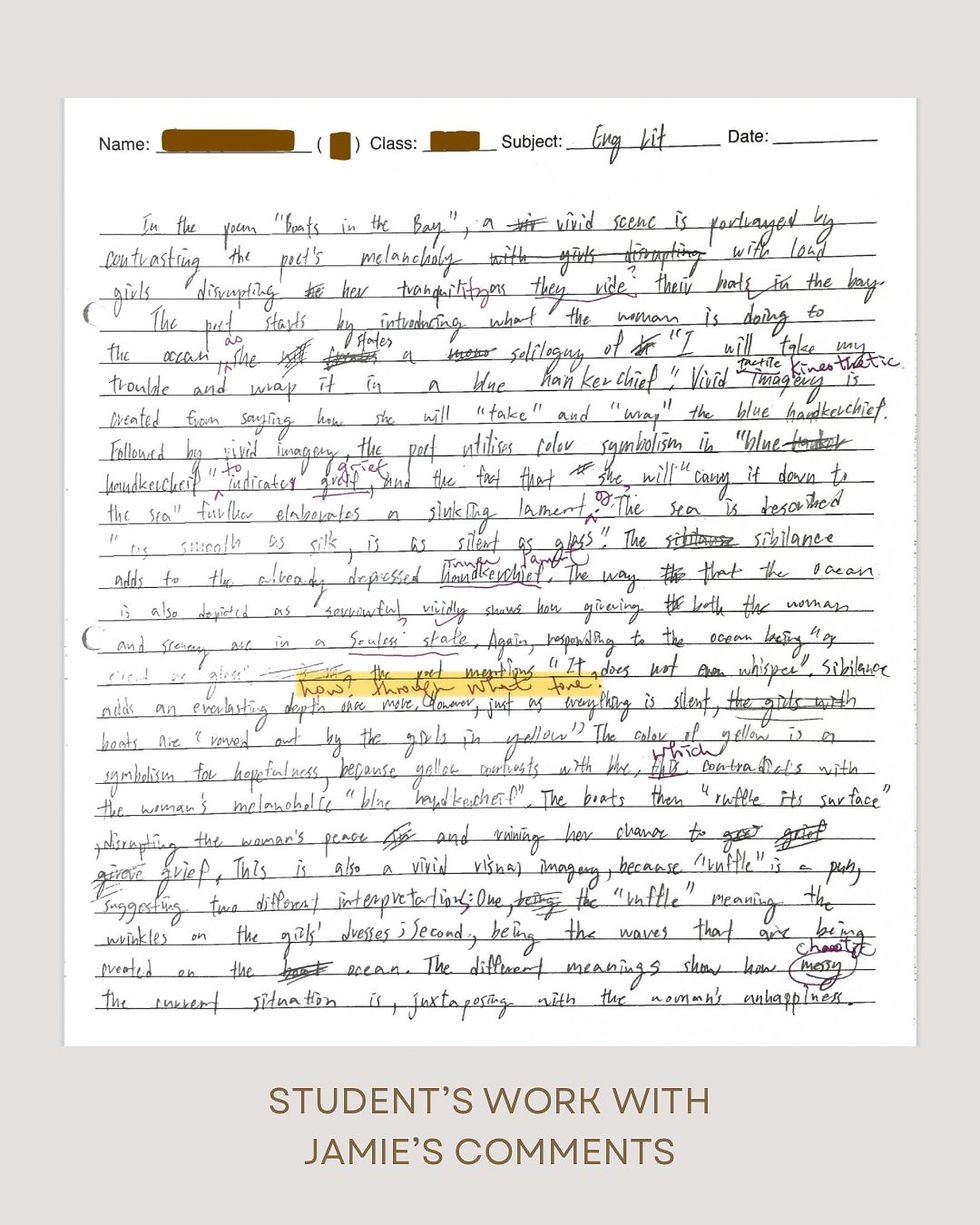 Name: ( ) Class: Subject: Eng Lit Date:
In the poem "Boats in the Bay", a vivid scene is portrayed by
contrasting the poet's melancholy with girls disrupting with loud
?
girls disrupting her tranquility as they ride their boats in the bay.
The poet starts by introducing what the woman is doing to
as states
the ocean, she a soliloquy of "I will take my
tactile kinesthetic
trouble and wrap it in a blue hankerchief". Vivid imagery is
created from saying how she will "take" and "wrap" the blue handkerchief.
Followed by vivid imagery, the poet utilises color symbolism in "blue
to grief
handkercheif" indicates greif, and the fact that she will "carry it down to
of
the sea" further elaborates a sinking lament. The sea is described
"as smooth as silk, is as silent as glass". The sibilance
adds to the already depressed handkerchief. The way that the ocean
is also depicted as sorrowful, vividly shows how grieving both the woman
and scenery are in a souless state. Again, responding to the ocean being "as
silent as glass", the poet mentions "It does not even whisper". Sibilance
how? through what tone?
adds an everlasting depth once more. However, just as everything is silent, the girls with
boats are "rowed out by the girls in yellow". The color of yellow is a
which
symbolism for hopefulness, because yellow contrasts with blue, this contradicts with
the woman's melancholic "blue handkercheif". The boats then "ruffle its surface"
, disrupting the woman's peace and ruining her chance to grief
grieve grief. This is also a vivid visual imagery, because "ruffle" is a pun,
suggesting two different interpretations: One, being the "ruffle" meaning the
wrinkles on the girls' dresses; Second, being the waves that are being
chaotic
created on the boat ocean. The different meanings show how messy
the current situation is, juxtaposing with the woman's unhappiness.
STUDENT'S WORK WITH
JAMIE'S COMMENTS